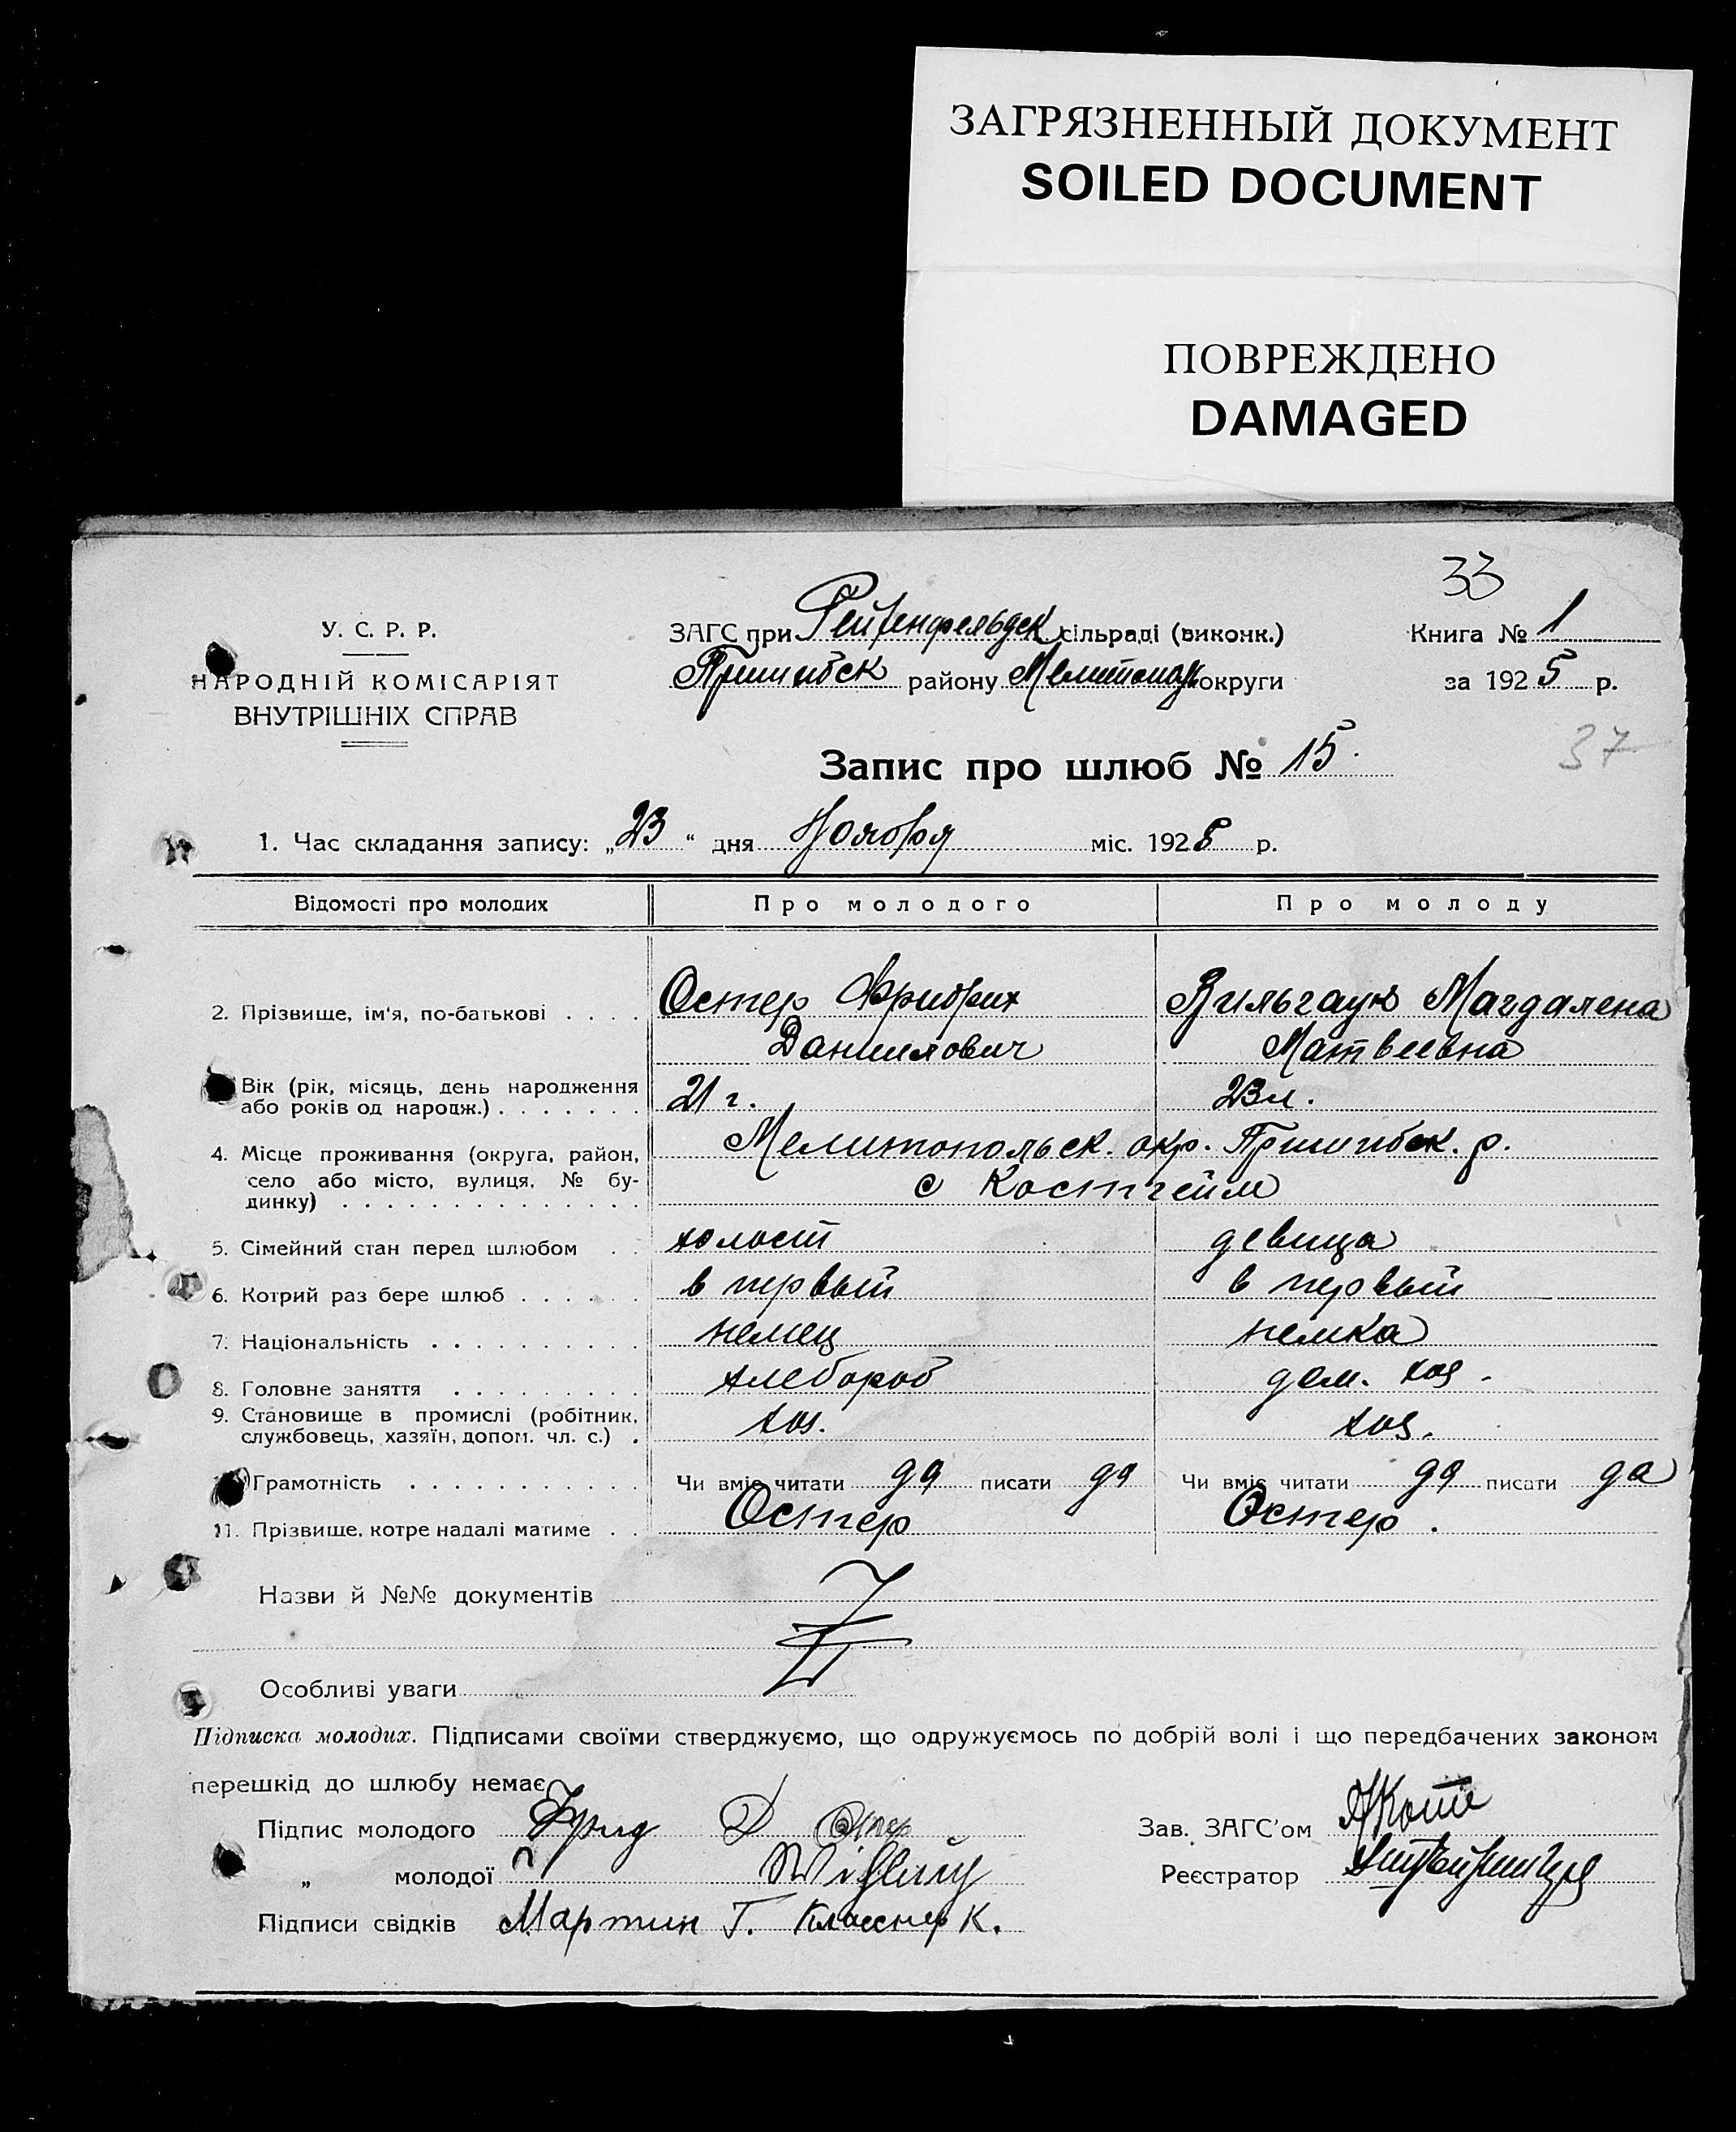 ЗАГРЯЗНЕННЫЙ ДОКУМЕНТ
SOILED DOCUMENT
ПОВРЕЖДЕНО
DAMAGED
33
У. С. Р. Р.
НАРОДНІЙ КОМІСАРІЯТ
ВНУТРІШНІХ СПРАВ
ЗАГС при Рейхенфельдск сільраді (виконк.)
Пришибск району Мелитопол округи
Книга № 1
за 1925 р.
37
Запис про шлюб № 15.
1. Час складання запису: „23“ дня Ноября міс. 1925 р.
Відомості про молодих Про молодого Про молоду
2. Прізвище, ім'я, по-батькові . . . . Остер Фридрих Вильгаук Магдалена
Даниилович Матвеевна
Вік (рік, місяць, день народження
або років од народж.) . . . . . . . 21 г. 23 л.
4. Місце проживання (округа, район,
село або місто, вулиця, № бу-
динку) . . . . . . . . . . . . . .
Мелитопольск. окр. Пришибск. р.
с Костгейм
5. Сімейний стан перед шлюбом . . холост девица
6. Котрий раз бере шлюб . . . . . в первый в первый
7. Національність . . . . . . . . . . немец немка
8. Головне заняття . . . . . . . . . хлебороб дом. хоз.
9. Становище в промислі (робітник,
службовець, хазяїн, допом. чл. с.) . хоз. хоз.
Грамотність . . . . . . . . . . . Чи вміє читати да писати да Чи вміє читати да писати да
11. Прізвище, котре надалі матиме . . Остер Остер.
Назви й №№ документів
Особливі уваги
Підписка молодих. Підписами своїми стверджуємо, що одружуємось по добрій волі і що передбачених законом
перешкід до шлюбу немає
Підпис молодого Фрид Д Остер
„ молодої
Підписи свідків Мартин Г. Класснер К.
Зав. ЗАГС'ом
Реєстратор